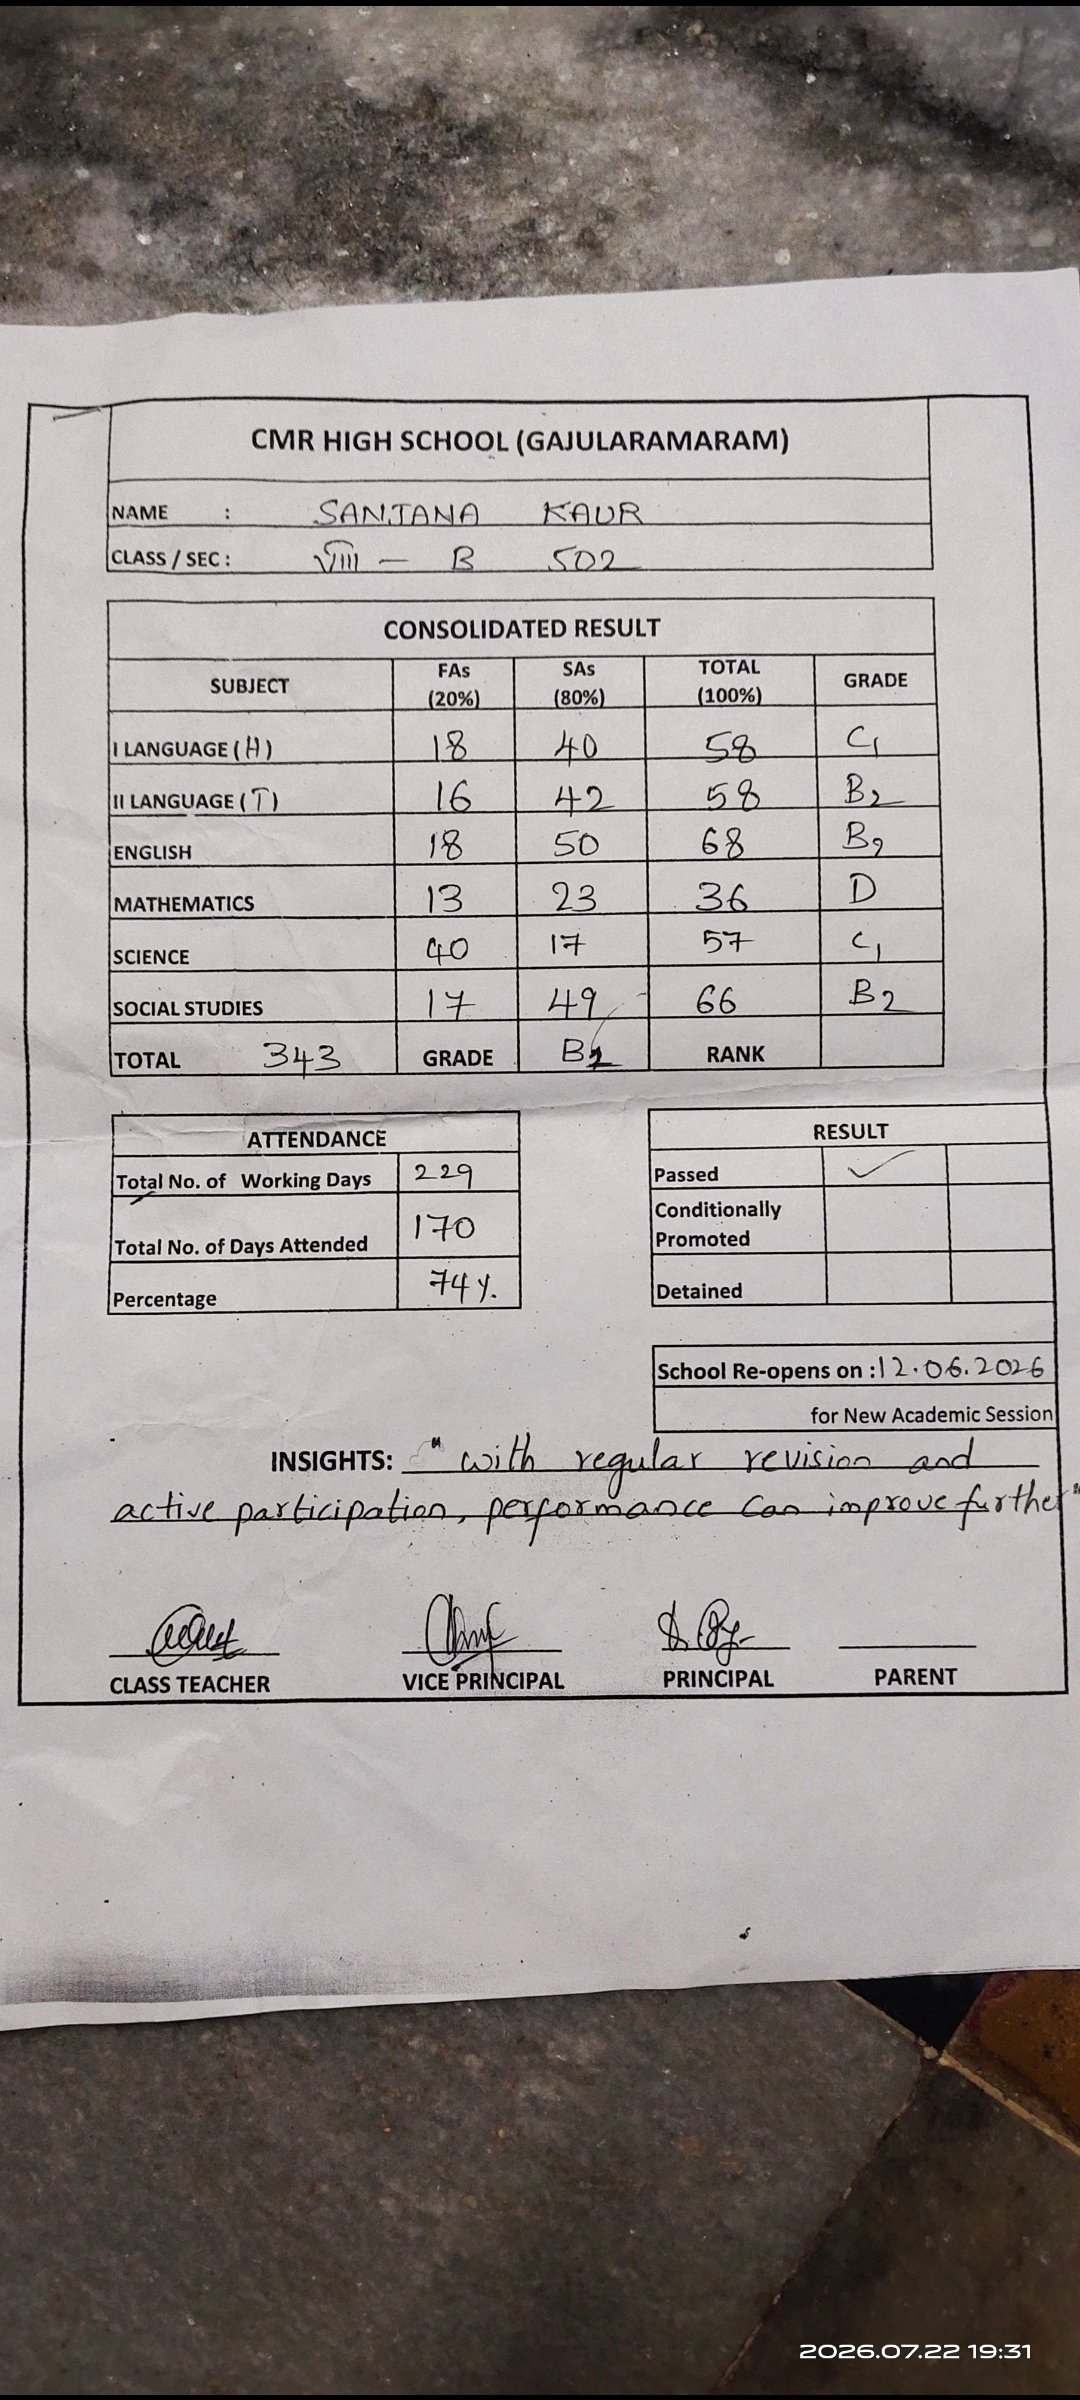 CMR HIGH SCHOOL (GAJULARAMARAM)
NAME : SANJANA KAUR
CLASS / SEC : VIII - B 502
CONSOLIDATED RESULT
SUBJECT FAs (20%) SAs (80%) TOTAL (100%) GRADE
I LANGUAGE (H) 18 40 58 C1
II LANGUAGE (T) 16 42 58 B2
ENGLISH 18 50 68 B2
MATHEMATICS 13 23 36 D
SCIENCE 40 17 57 C1
SOCIAL STUDIES 17 49 66 B2
TOTAL 343 GRADE B2 RANK
ATTENDANCE
Total No. of Working Days 229
Total No. of Days Attended 170
Percentage 74%
RESULT
Passed ✓
Conditionally
Promoted
Detained
School Re-opens on : 12.06.2026
for New Academic Session
INSIGHTS: "with regular revision and
active participation, performance can improve further"
CLASS TEACHER VICE PRINCIPAL PRINCIPAL PARENT
2026.07.22 19:31